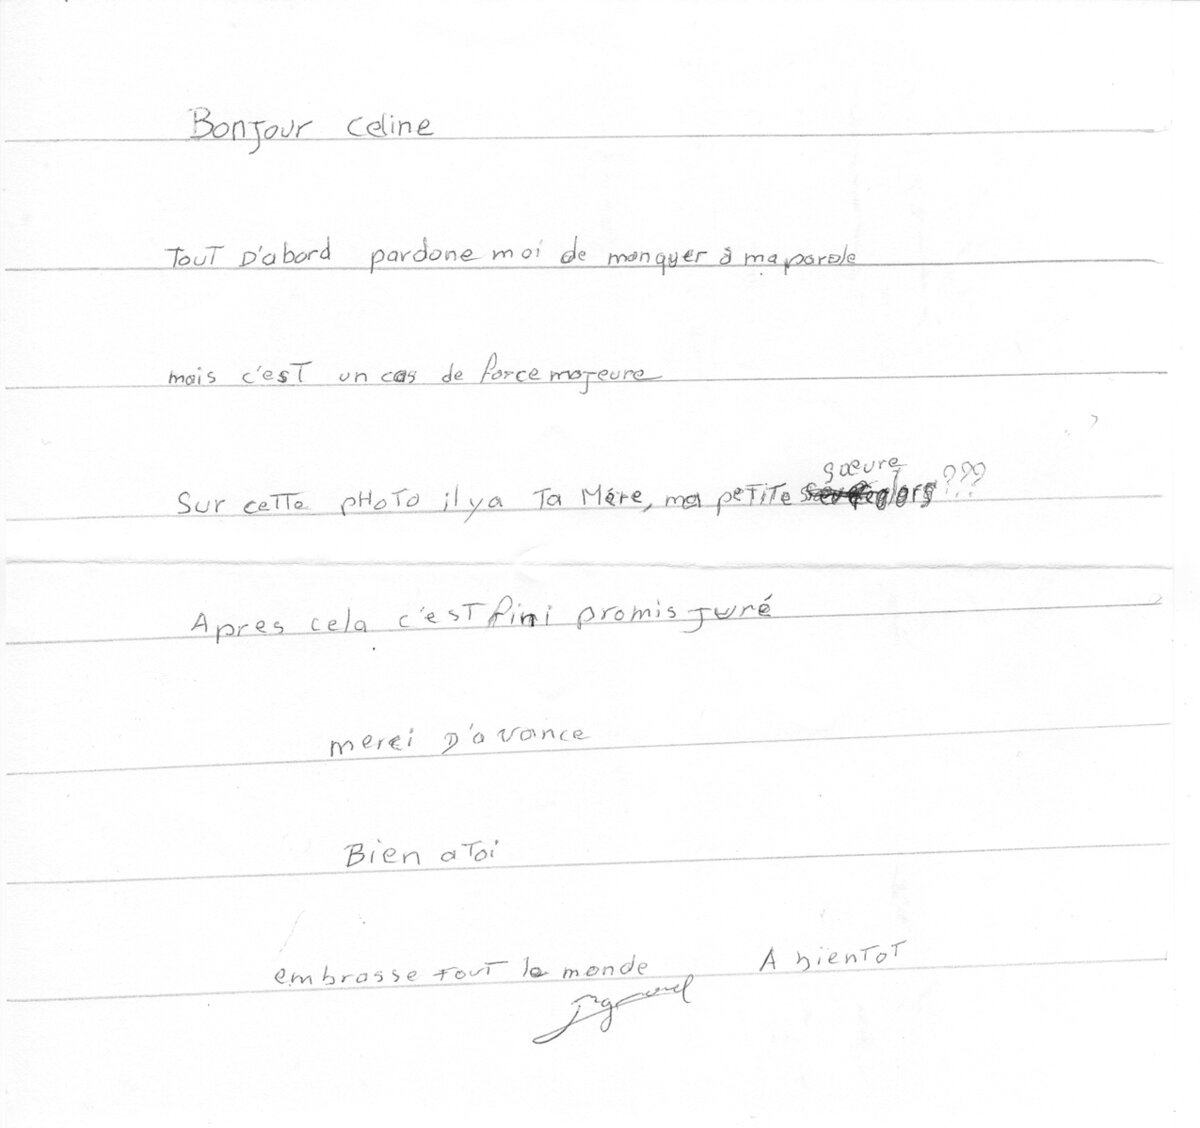 Bonjour Celine
Tout D'abord pardone moi de manquer à ma parole
mais c'est un cas de force majeure
sœure
Sur cette pHoto il y a Ta Mére, ma petite alors ???
Apres cela c'est fini promis juré
merci D'avance
Bien a Toi
embrasse tout le monde A bientot